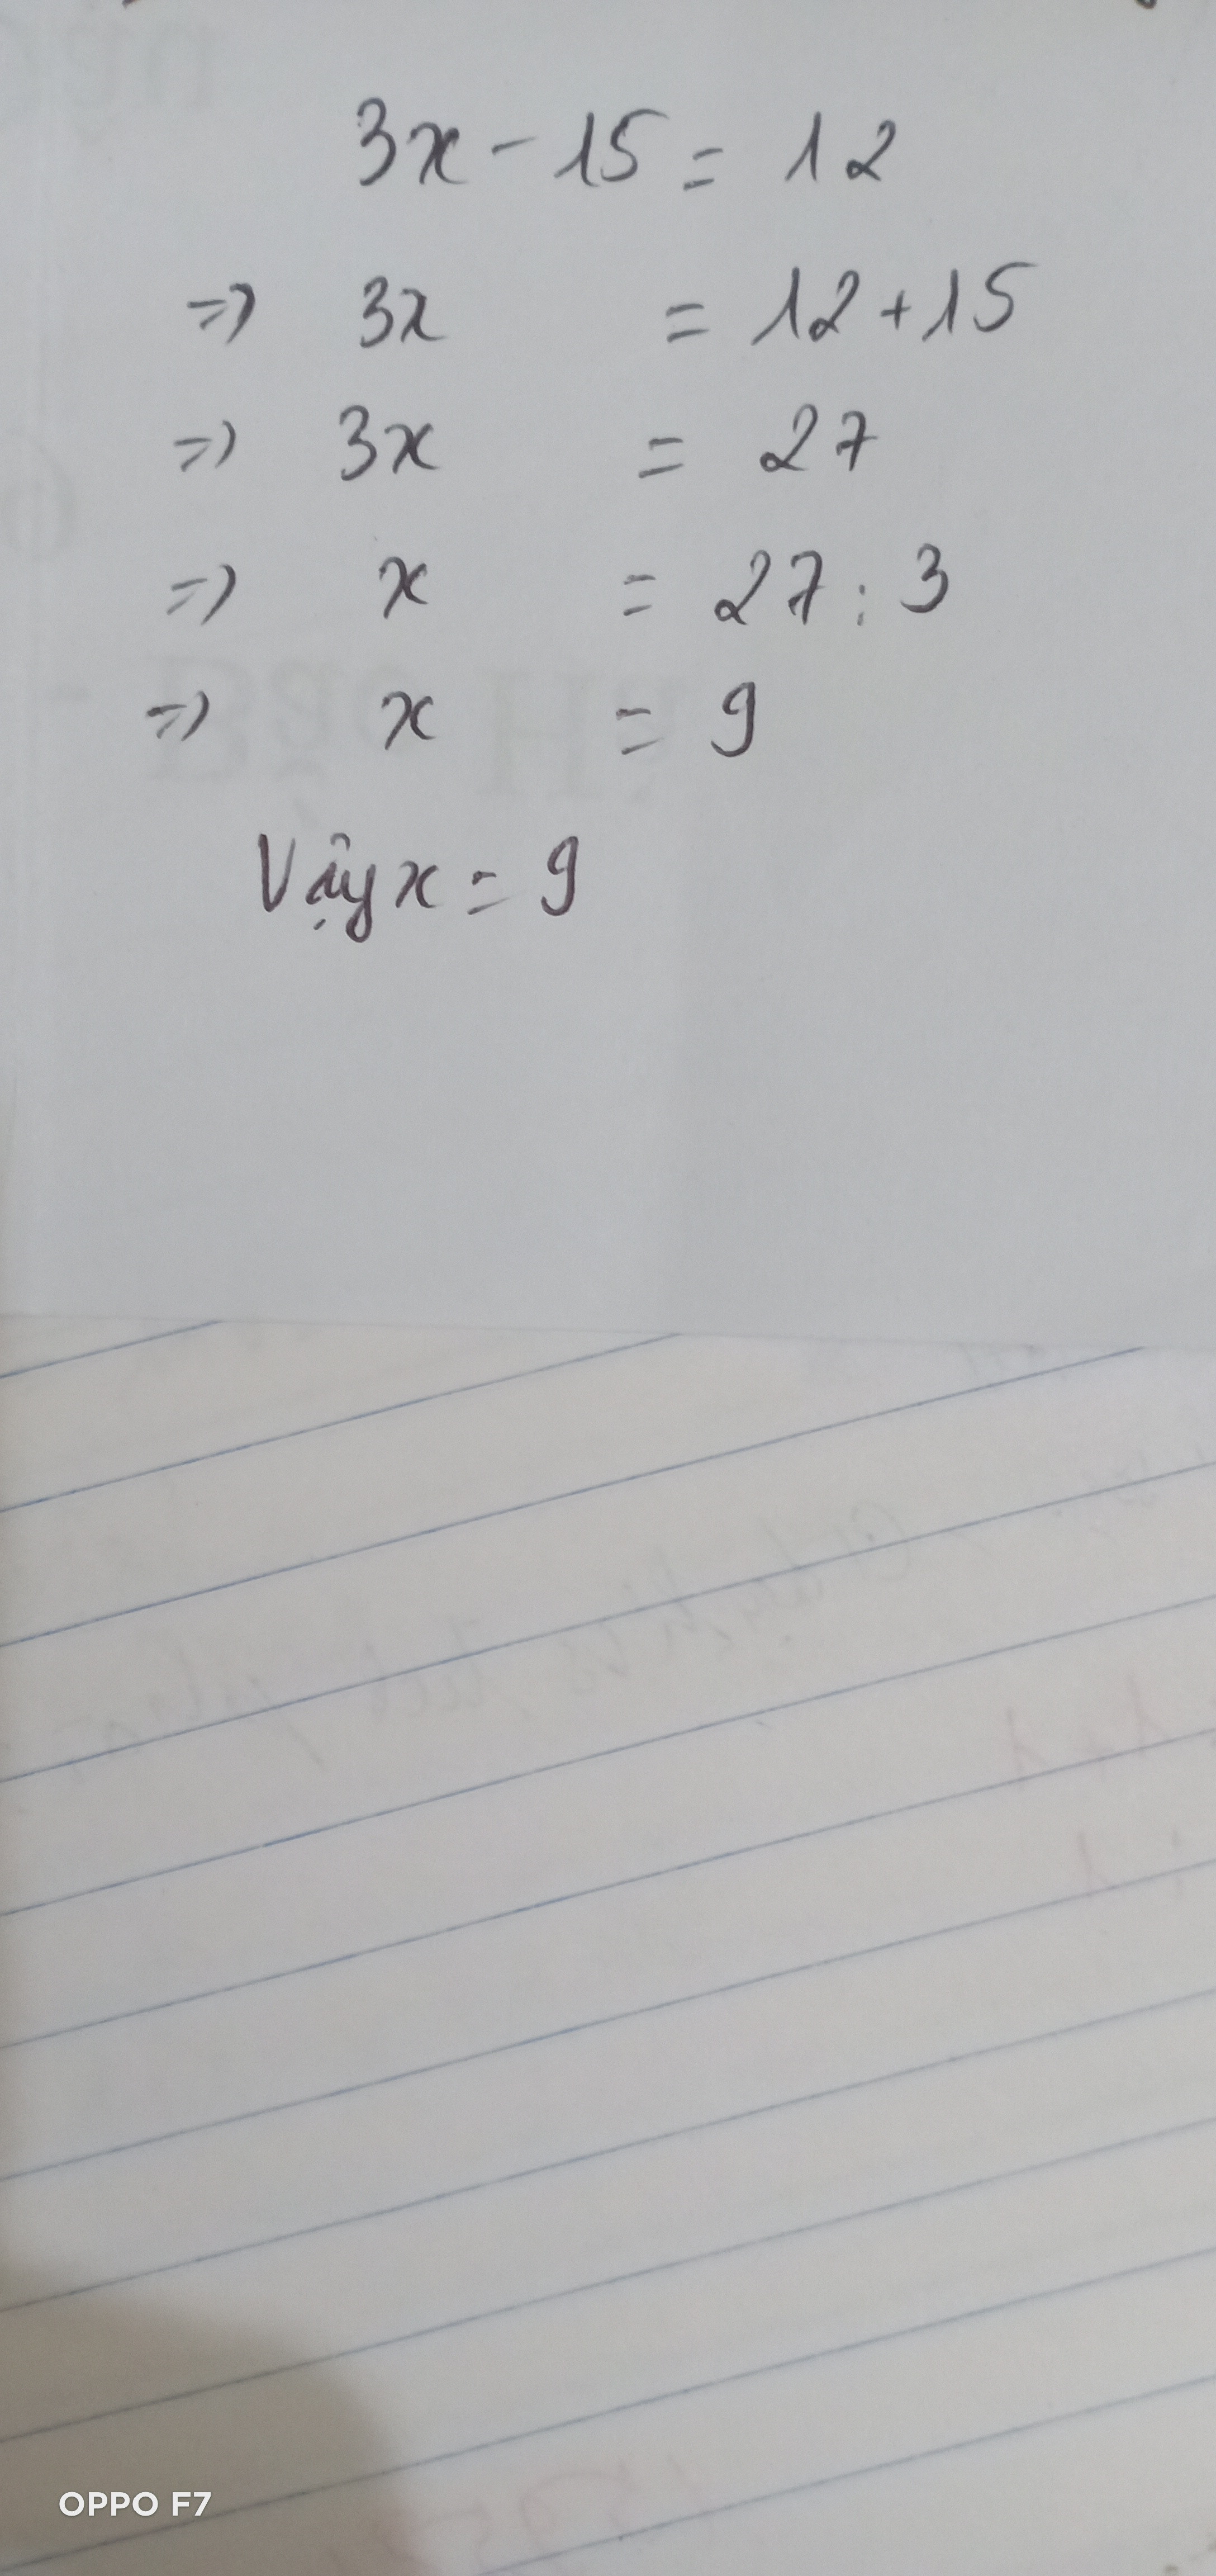 3x - 15 = 12
=> 3x = 12 + 15
=> 3x = 27
=> x = 27 : 3
=> x = 9
Vậy x = 9
OPPO F7